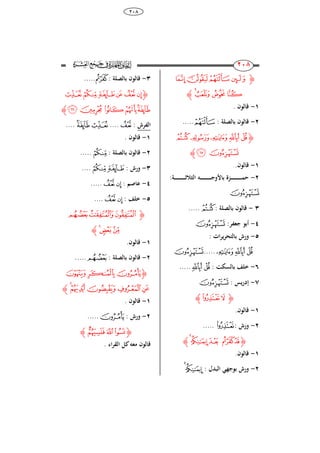 ٢٠٨
٢٠٨
﴿ وَلَئِن سَأَلْتَهُمْ لَيَقُولُنَّ إِنَّمَا
كُنَّا نَخُوضُ وَنَلْعَبُ ﴾
١- قالون .
٢- قالون بالصلة : سَأَلْتَهُمْ .....
﴿ قُلْ أَبِاللَّهِ وَءَايَاتِهِ وَرَسُولِهِ كُنتُمْ
تَسْتَهْزِءُونَ ﴾
١- قالون.
٢- حمزة بالأوجه الثلاثة:
تَسْتَهْزِءُونَ
٣- قالون بالصلة : كُنتُمْ .....
٤- أبو جعفر: تَسْتَهْزِءُونَ
٥- ورش بالتحريرات :
قُلْ أَبِاللَّهِ وَءَايَاتِهِ..... تَسْتَهْزِءُونَ
٦- خلف بالسكت : قُلْ أَبِاللَّهِ .....
٧- إدريس : تَسْتَهْزِءُونَ
﴿ لَا تَعْتَذِرُوا ﴾
١- قالون.
٢- ورش : تَعْتَذِرُوا .....
﴿ قَدْ كَفَرْتُم بَعْدَ إِيمَانِكُمْ ﴾
١- قالون.
٢- ورش بوجهي البدل : إِيمَانِكُمْ
٣- قالون بالصلة : كَفَرْتُم .....
﴿ إِن نَّعْفُ عَن طَائِفَةٍ مِّنكُمْ نُعَذِّبْ
طَائِفَةً بِأَنَّهُمْ كَانُوا مُجْرِمِينَ ﴾
الفرش : نَّعْفُ .... نُعَذِّبْ طَائِفَةً ....
١- قالون .
٢- قالون بالصلة : مِّنكُمْ .....
٣- ورش : طَائِفَةٍ مِّنكُمْ ....
٤- عاصم : إِن نَّعْفُ .....
٥- خلف : إِن نَّعْفُ ....
﴿ الْمُنَافِقُونَ وَالْمُنَافِقَاتُ بَعْضُهُم
مِّن بَعْضٍ ﴾
١- قالون.
٢- قالون بالصلة : بَعْضُهُم .....
﴿ يَأْمُرُونَ بِالْمُنكَرِ وَيَنْهَوْنَ
عَنِ الْمَعْرُوفِ وَيَقْبِضُونَ أَيْدِيَهُمْ ﴾
١- قالون .
٢- ورش : يَأْمُرُونَ .....
﴿ نَسُوا اللَّهَ فَنَسِيَهُمْ ﴾
قالون معه كل القراء .